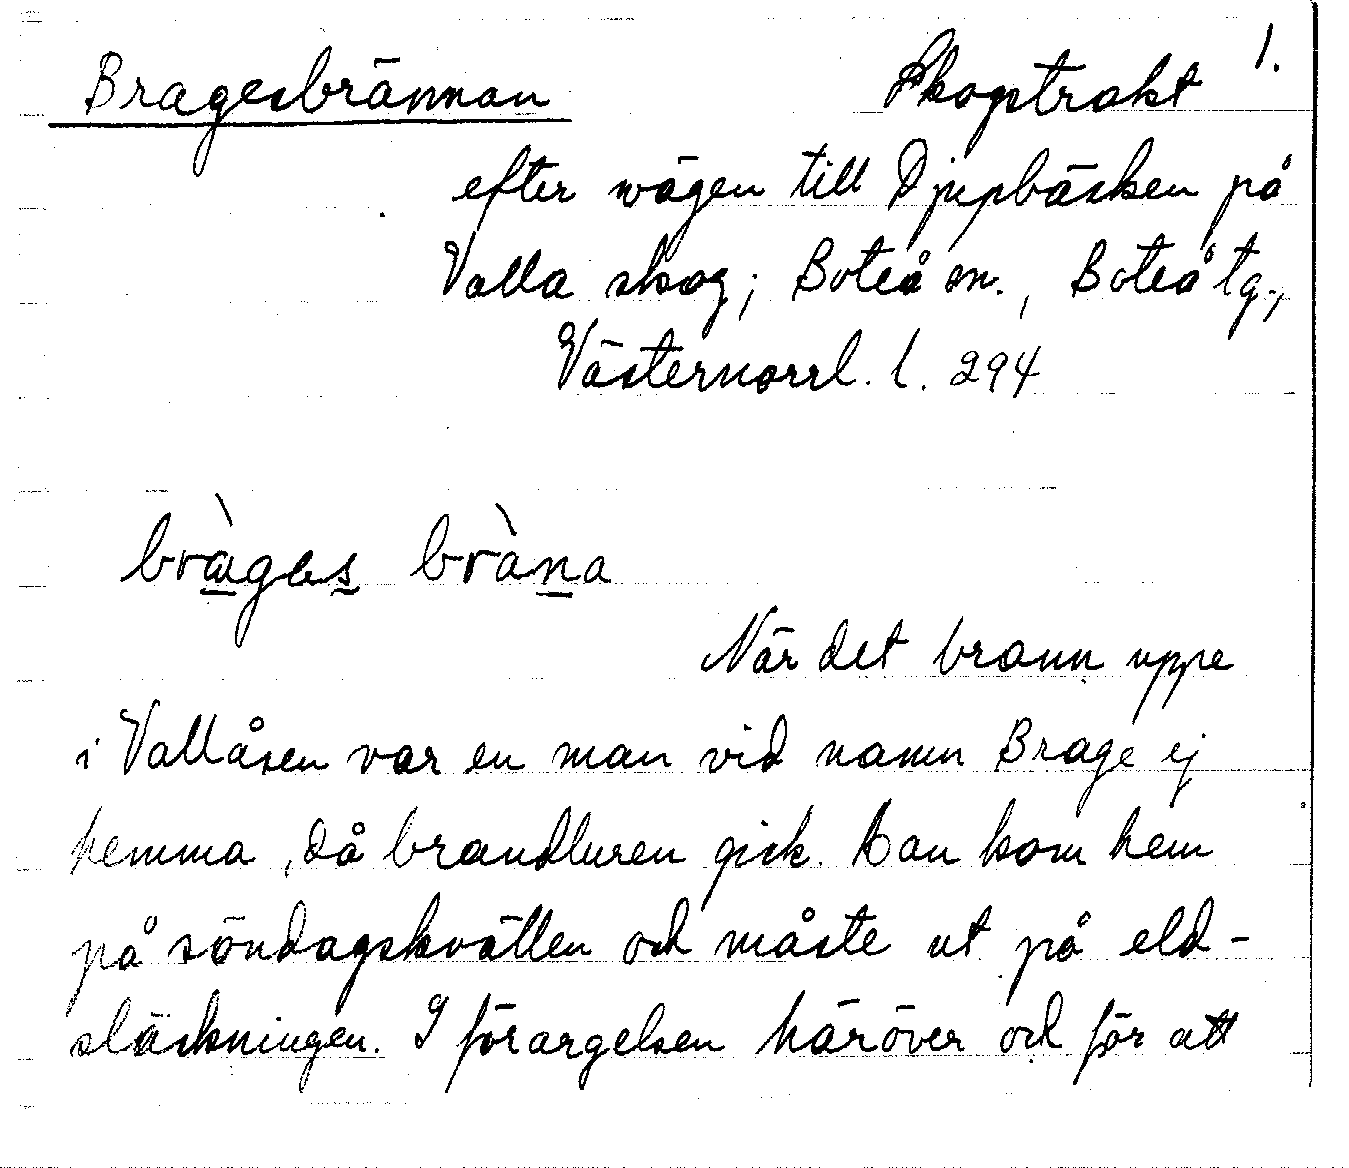 Bragesbrännan Skogstrakt 1.
efter vägen till Djupbäcken på
Valla skog; Boteå sn., Boteå tg.,
Västernorrl. l. 294
bràges bràna
När det brann uppe
i Vallåsen var en man vid namn Brage ej
hemma, då brandluren gick. Han kom hem
på söndagskvällen och måste ut på eld-
släckningen. I förargelsen häröver och för att